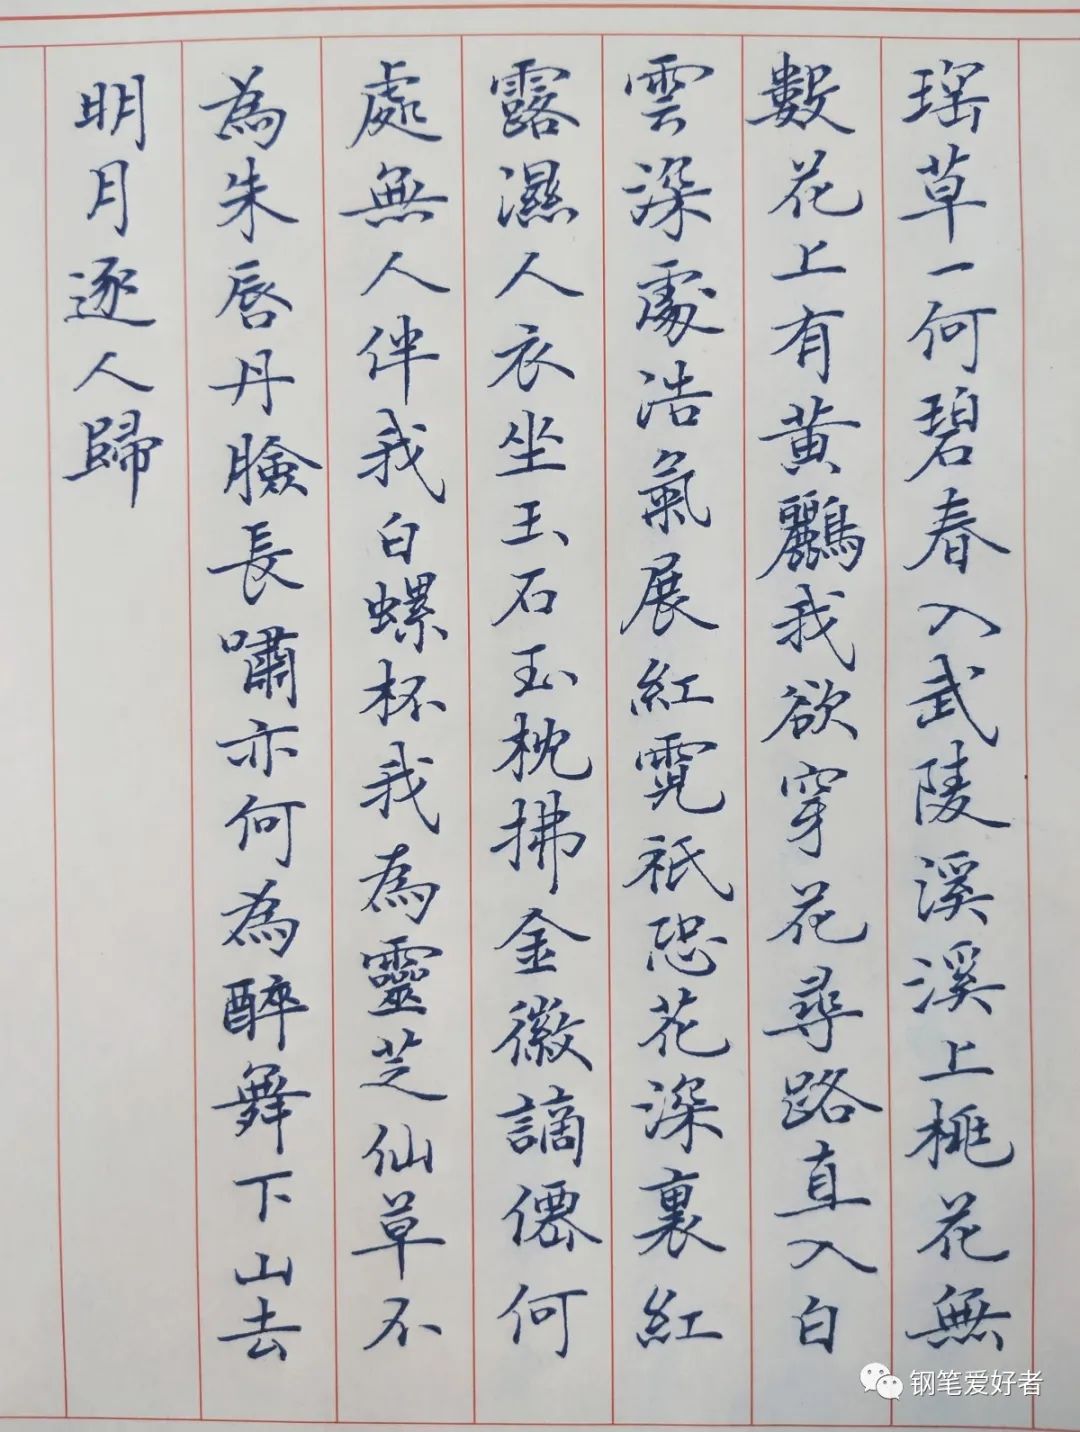 瑶草一何碧春入武陵溪溪上桃花無
數花上有黃鸝我欲穿花尋路直入白
雲深處浩氣展紅霓祇恐花深裏紅
露濕人衣坐玉石玉枕拂金徽謫僊何
處無人伴我白螺杯我為靈芝仙草不
為朱唇丹臉長嘯亦何為醉舞下山去
明月逐人歸
钢笔爱好者